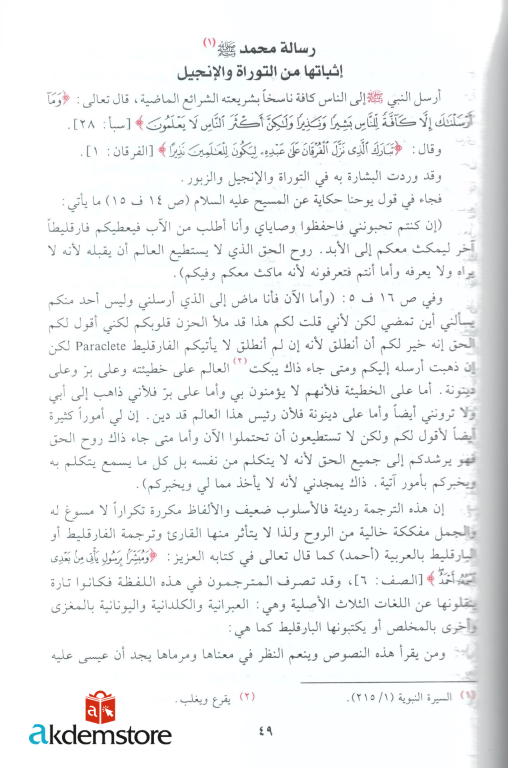 رسالة محمد ﷺ (١)
إثباتها من التوراة والإنجيل
أرسل النبي ﷺ إلى الناس كافة ناسخاً بشريعته الشرائع الماضية، قال تعالى: ﴿وَمَآ
أَرْسَلْنَٰكَ إِلَّا كَآفَّةً لِّلنَّاسِ بَشِيرًا وَنَذِيرًا وَلَٰكِنَّ أَكْثَرَ ٱلنَّاسِ لَا يَعْلَمُونَ﴾ [سبأ: ٢٨].
وقال: ﴿تَبَارَكَ ٱلَّذِى نَزَّلَ ٱلْفُرْقَانَ عَلَىٰ عَبْدِهِۦ لِيَكُونَ لِلْعَٰلَمِينَ نَذِيرًا﴾ [الفرقان: ١].
وقد وردت البشارة به في التوراة والإنجيل والزبور.
فجاء في قول يوحنا حكاية عن المسيح عليه السلام (ص ١٤ ف ١٥) ما يأتي:
(إن كنتم تحبونني فاحفظوا وصاياي وأنا أطلب من الآب فيعطيكم فارقليطاً
آخر ليمكث معكم إلى الأبد. روح الحق الذي لا يستطيع العالم أن يقبله لأنه لا
يراه ولا يعرفه وأما أنتم فتعرفونه لأنه ماكث معكم وفيكم).
وفي ص ١٦ ف ٥: (وأما الآن فأنا ماض إلى الذي أرسلني وليس أحد منكم
يسألني أين تمضي لكن لأني قلت لكم هذا قد ملأ الحزن قلوبكم لكني أقول لكم
الحق إنه خير لكم أن أنطلق لأنه إن لم أنطلق لا يأتيكم الفارقليط Paraclete لكن
إن ذهبت أرسله إليكم ومتى جاء ذاك يبكت (٢) العالم على خطيئته وعلى برّ وعلى
دينونة. أما على الخطيئة فلأنهم لا يؤمنون بي وأما على برّ فلأني ذاهب إلى أبي
ولا ترونني أيضاً وأما على دينونة فلأن رئيس هذا العالم قد دين. إن لي أموراً كثيرة
أيضاً لأقول لكم ولكن لا تستطيعون أن تحتملوا الآن وأما متى جاء ذاك روح الحق
فهو يرشدكم إلى جميع الحق لأنه لا يتكلم من نفسه بل كل ما يسمع يتكلم به
ويخبركم بأمور آتية. ذاك يمجدني لأنه لا يأخذ مما لي ويخبركم).
إن هذه الترجمة رديئة فالأسلوب ضعيف والألفاظ مكررة تكراراً لا مسوغ له
والجمل مفككة خالية من الروح ولذا لا يتأثر منها القارئ وترجمة الفارقليط أو
البارقليط بالعربية (أحمد) كما قال تعالى في كتابه العزيز: ﴿وَمُبَشِّرًۢا بِرَسُولٍ يَأْتِى مِنۢ بَعْدِى
ٱسْمُهُۥٓ أَحْمَدُ﴾ [الصف: ٦]، وقد تصرف المترجمون في هذه اللفظة فكانوا تارة
ينقلونها عن اللغات الثلاث الأصلية وهي: العبرانية والكلدانية واليونانية بالمغزى
وأخرى بالمخلص أو يكتبونها البارقليط كما هي:
ومن يقرأ هذه النصوص وينعم النظر في معناها ومرماها يجد أن عيسى عليه
(١) السيرة النبوية (١/ ٢١٥).
(٢) يقرع ويغلب.
٤٩
akdemstore